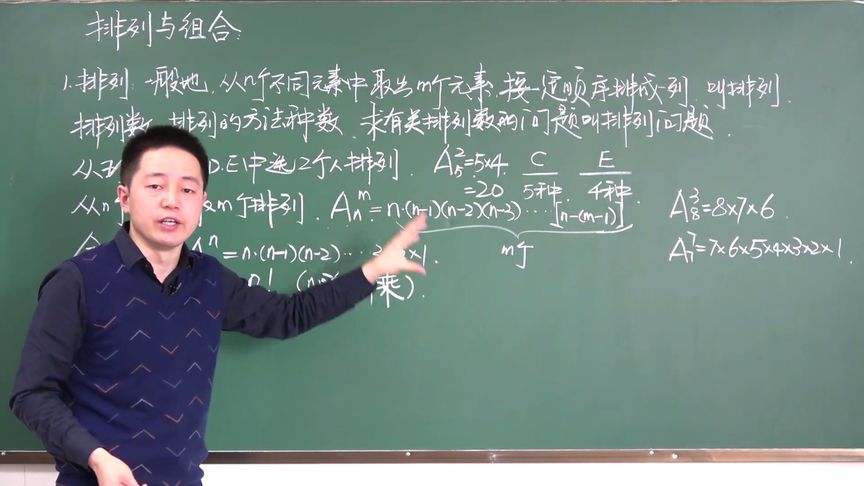 排列与组合:
1.排列:一般地,从n个不同元素中取出m个元素,按一定顺序排成一列,叫排列.
排列数:排列的方法种数.求有关排列数的问题叫排列问题.
D.E中选2个人排列. A₅²=5×4. C E
=20 5种. 4种.
从n m个排列. Aₙᵐ=n·(n-1)(n-2)(n-3)····[n-(m-1)] A₈³=8×7×6.
ⁿ=n·(n-1)(n-2)··· ×1. m个 A₇⁷=7×6×5×4×3×2×1.
n! 乘).